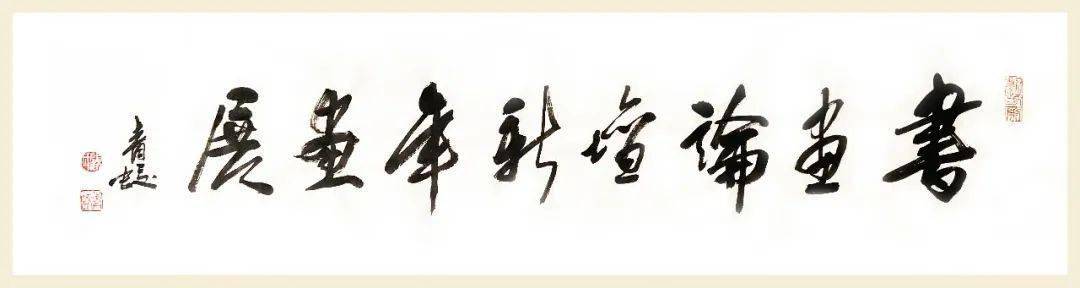 書畫論壇新年畫展